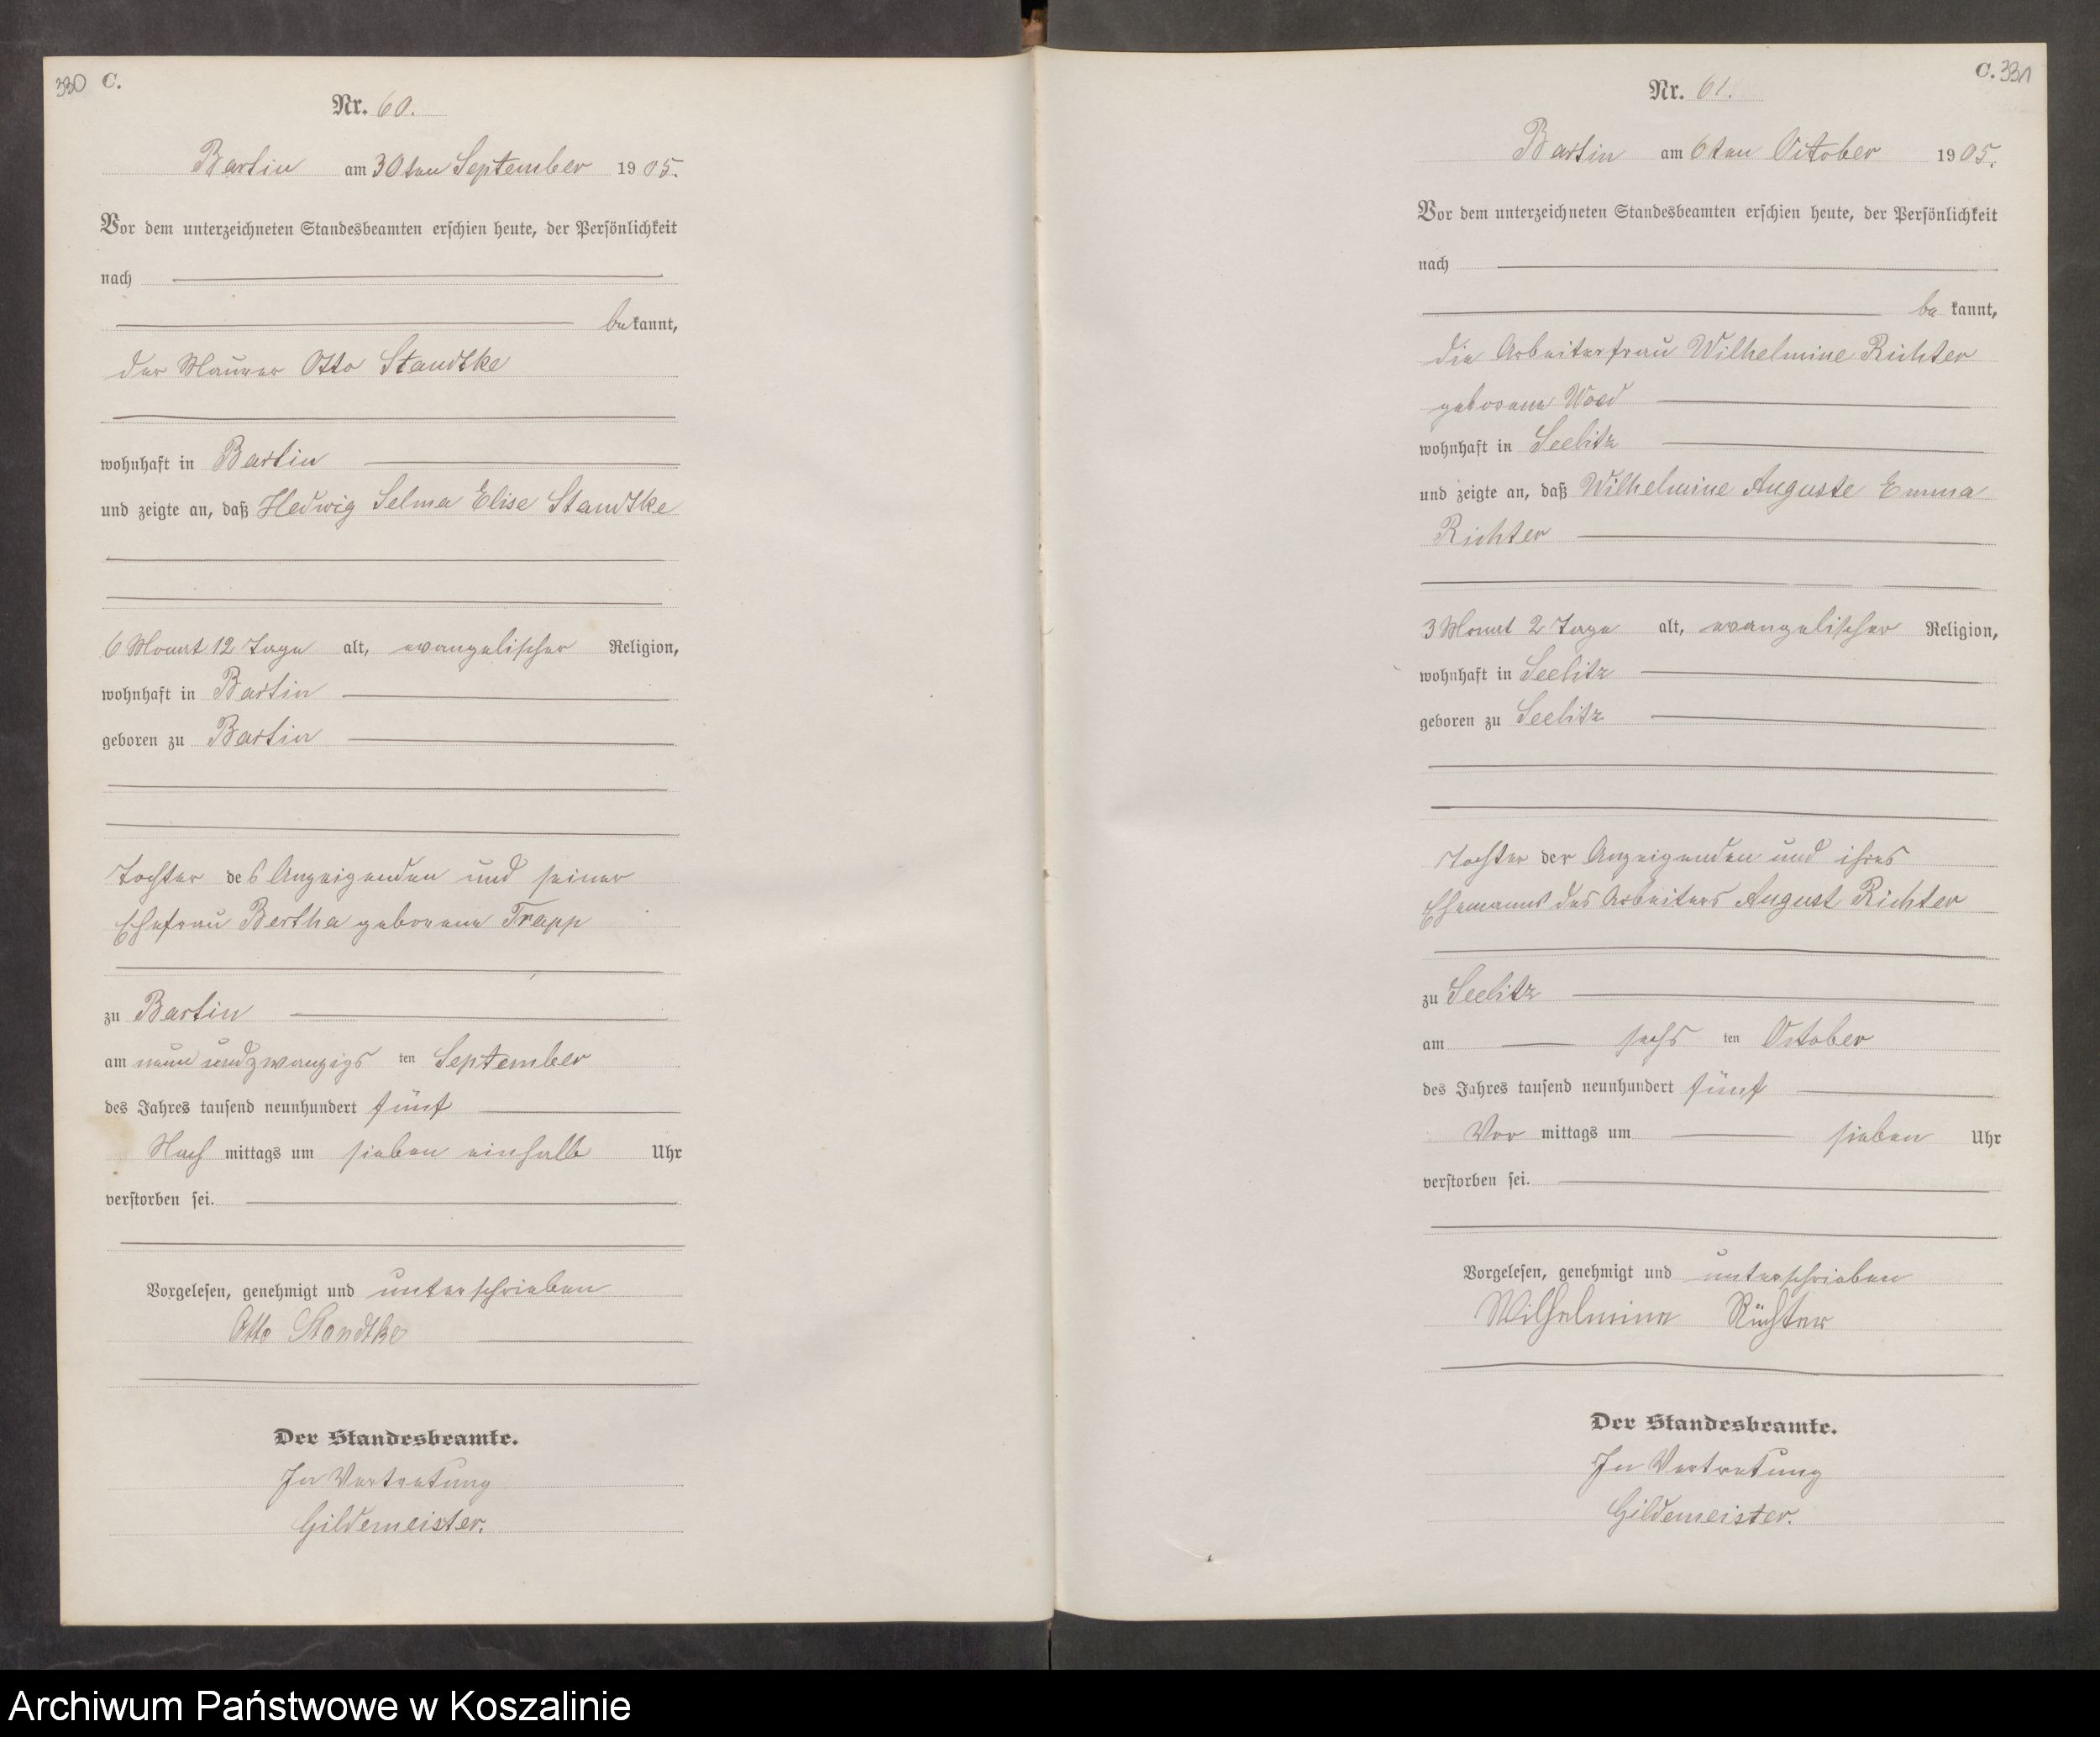 330 C.
Nr. 60.
Bartin am 30ten September 1905.
Vor dem unterzeichneten Standesbeamten erschien heute, der Persönlichkeit
nach
bekannt,
der Maurer Otto Standtke
wohnhaft in Bartin
und zeigte an, daß Hedwig Selma Elise Standtke
6 Monat 12 Tage alt, evangelischer Religion,
wohnhaft in Bartin
geboren zu Bartin
Tochter des Anzeigenden und seiner
Ehefrau Bertha geborene Trapp
zu Bartin
am neun und zwanzigs ten September
des Jahres tausend neunhundert fünf
Nach mittags um sieben einhalb Uhr
verstorben sei.
Vorgelesen, genehmigt und unterschrieben
Otto Standtke
Der Standesbeamte.
In Vertretung
Gildemeister.
C. 331
Nr. 61.
Bartin am 6ten October 1905.
Vor dem unterzeichneten Standesbeamten erschien heute, der Persönlichkeit
nach
be kannt,
die Arbeiterfrau Wilhelmine Richter
geborene
wohnhaft in Seelitz
und zeigte an, daß Wilhelmine Auguste Emma
Richter
3 Monat 2 Tage alt, evangelischer Religion,
wohnhaft in Seelitz
geboren zu Seelitz
Tochter der Anzeigenden und ihres
Ehemanns des Arbeiters August Richter
zu Seelitz
am sechs ten October
des Jahres tausend neunhundert fünf
Vor mittags um sieben Uhr
verstorben sei.
Vorgelesen, genehmigt und unterschrieben
Wilhelmine Richter
Der Standesbeamte.
In Vertretung
Gildemeister.
Archiwum Państwowe w Koszalinie